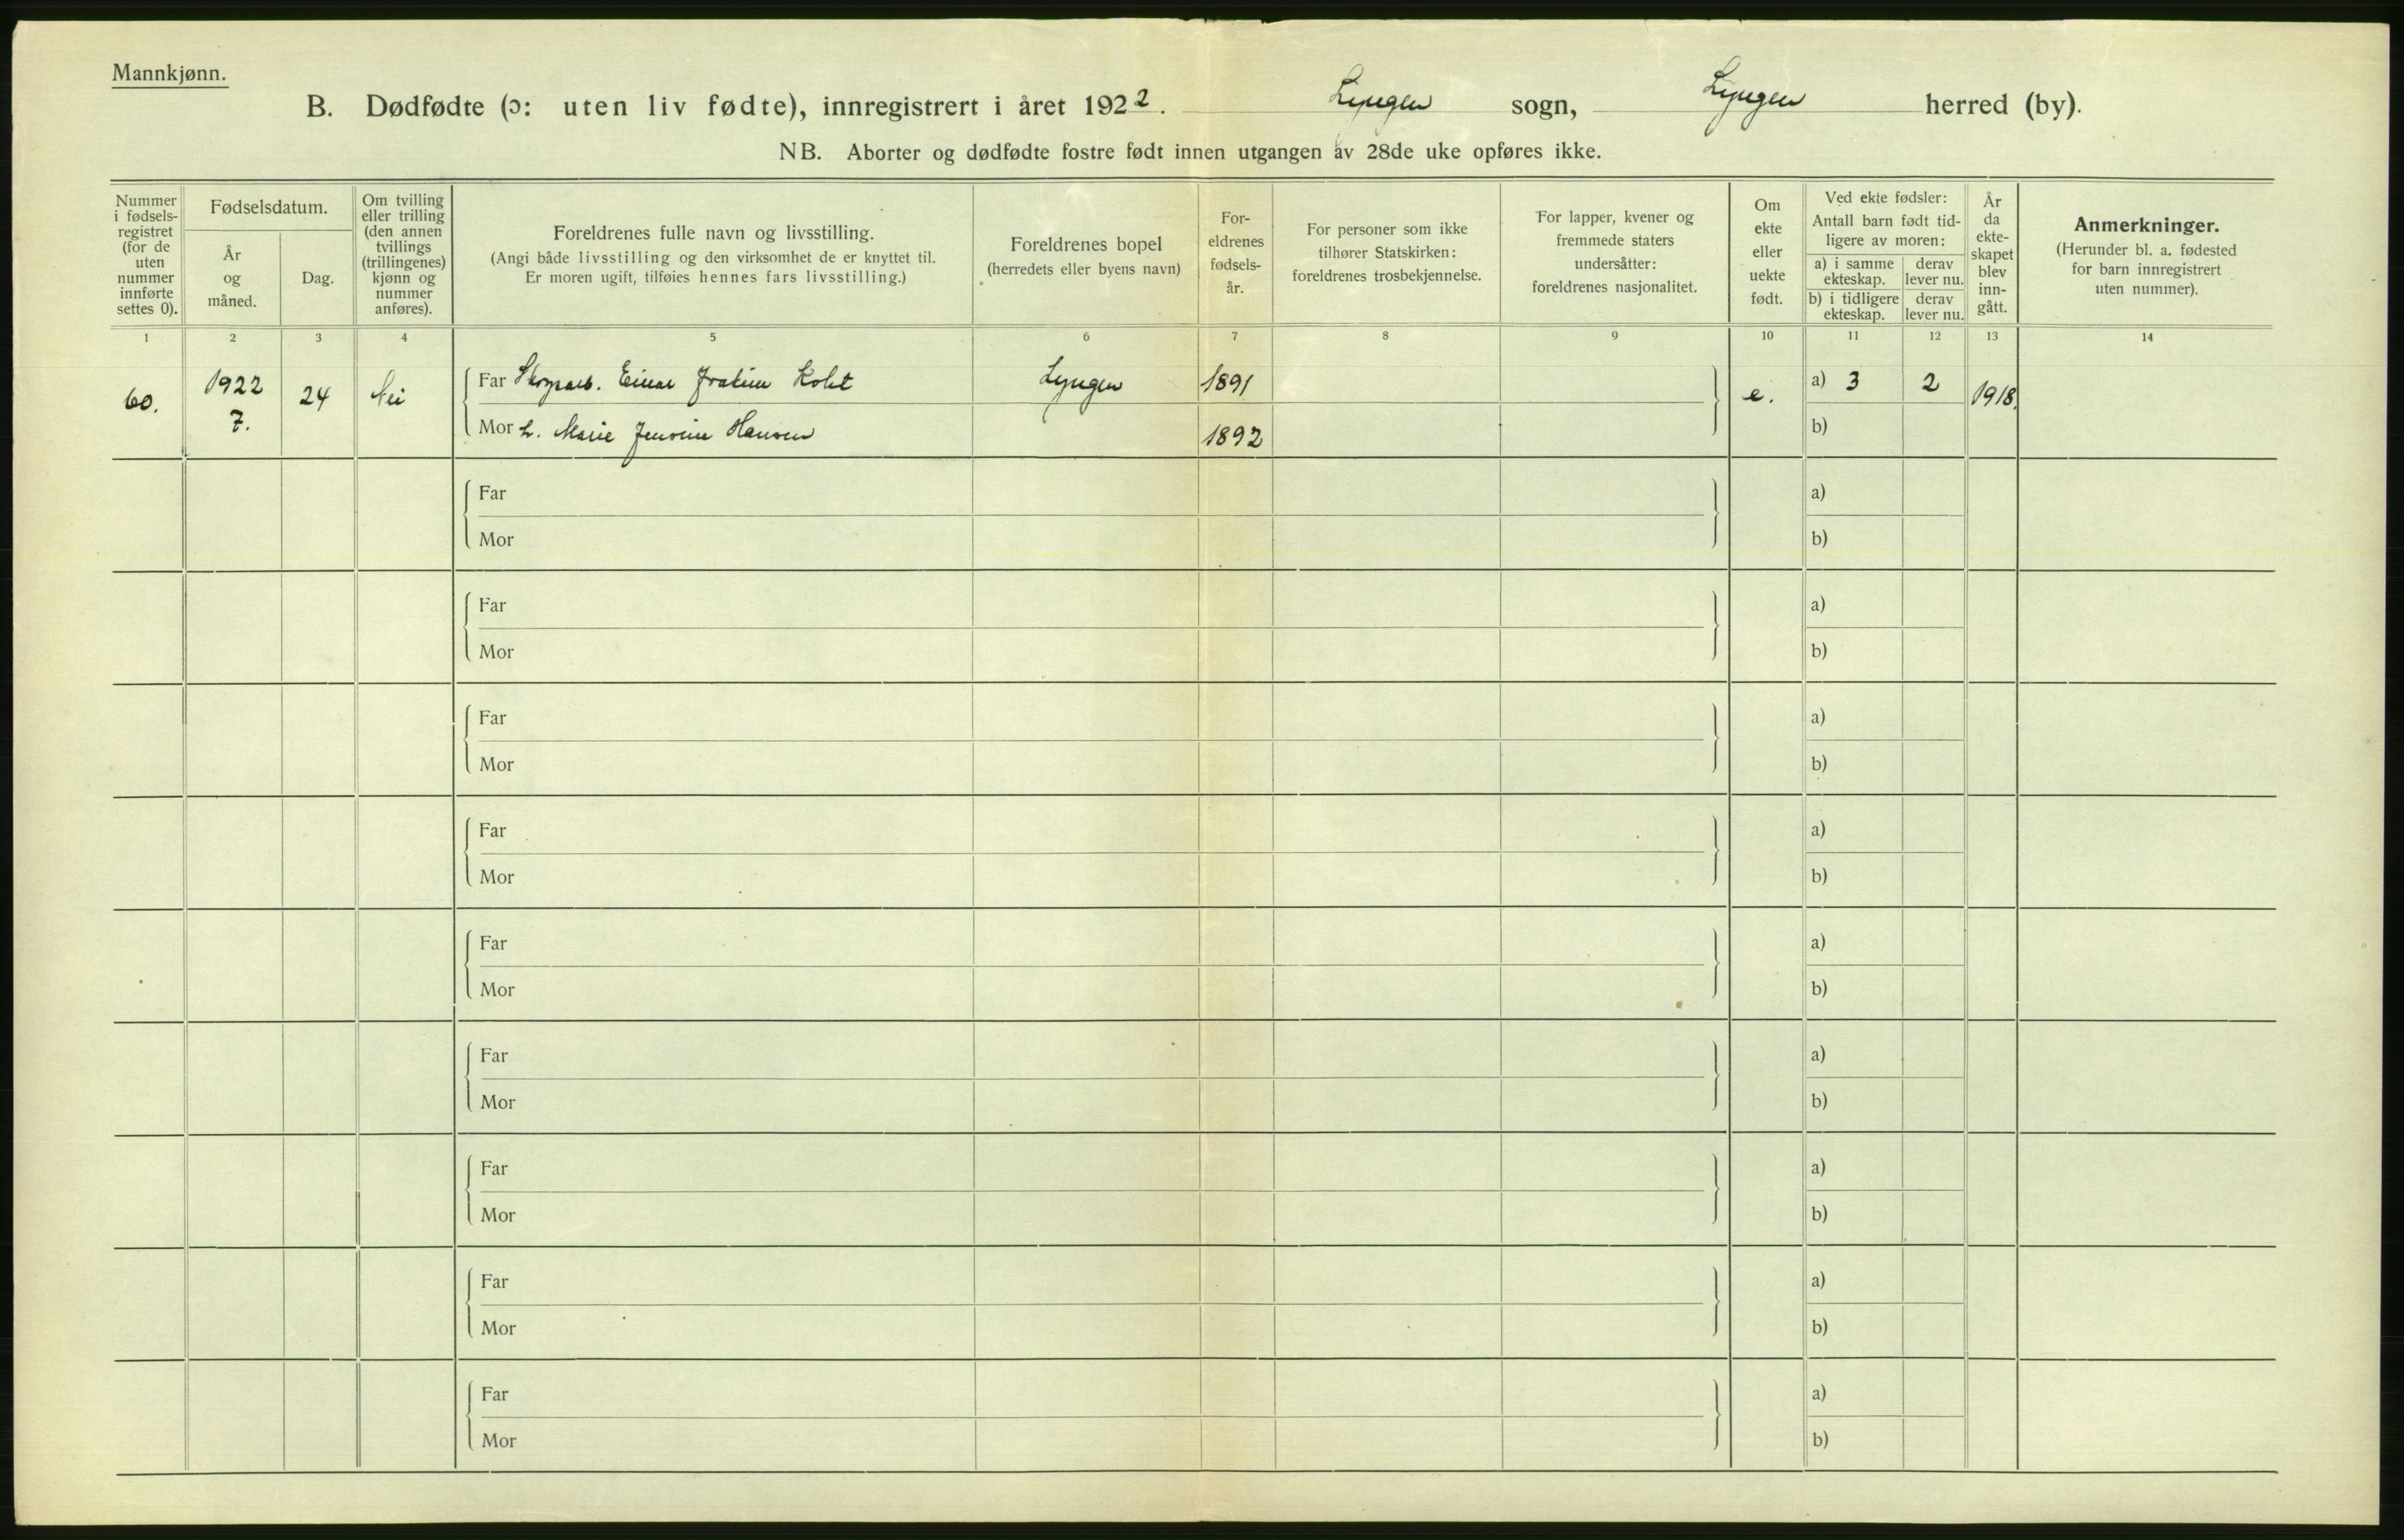 Mannkjønn.
B. Dødfødte (ɔ: uten liv fødte), innregistrert i året 1922. Lyngen sogn, Lyngen herred (by).
NB. Aborter og dødfødte fostre født innen utgangen av 28de uke opføres ikke.
Nummer
i fødsels-
registret
(for de
uten
nummer
innførte
settes 0).
Fødselsdatum.
År
og
måned.
Dag.
Om tvilling
eller trilling
(den annen
tvillings
(trillingenes)
kjønn og
nummer
anføres).
Foreldrenes fulle navn og livsstilling.
(Angi både livsstilling og den virksomhet de er knyttet til.
Er moren ugift, tilføies hennes fars livsstilling.)
Foreldrenes bopel
(herredets eller byens navn)
For-
eldrenes
fødsels-
år.
For personer som ikke
tilhører Statskirken:
foreldrenes trosbekjennelse.
For lapper, kvener og
fremmede staters
undersåtter:
foreldrenes nasjonalitet.
Om
ekte
eller
uekte
født.
Ved ekte fødsler:
Antall barn født tid-
ligere av moren:
a) i samme
ekteskap.
derav
lever nu.
b) i tidligere
ekteskap.
derav
lever nu.
År
da
ekte-
skapet
blev
inn-
gått.
Anmerkninger.
(Herunder bl. a. fødested
for barn innregistrert
uten nummer).
1 2 3 4 5 6 7 8 9 10 11 12 13 14
60. 1922 7. 24 Nei
Far Einar Joakim Kolit Lyngen 1891 e. a) 3 2 1918.
Mor h. Marie Jensine Hansen 1892 b)
Far a)
Mor b)
Far a)
Mor b)
Far a)
Mor b)
Far a)
Mor b)
Far a)
Mor b)
Far a)
Mor b)
Far a)
Mor b)
Far a)
Mor b)
Far a)
Mor b)